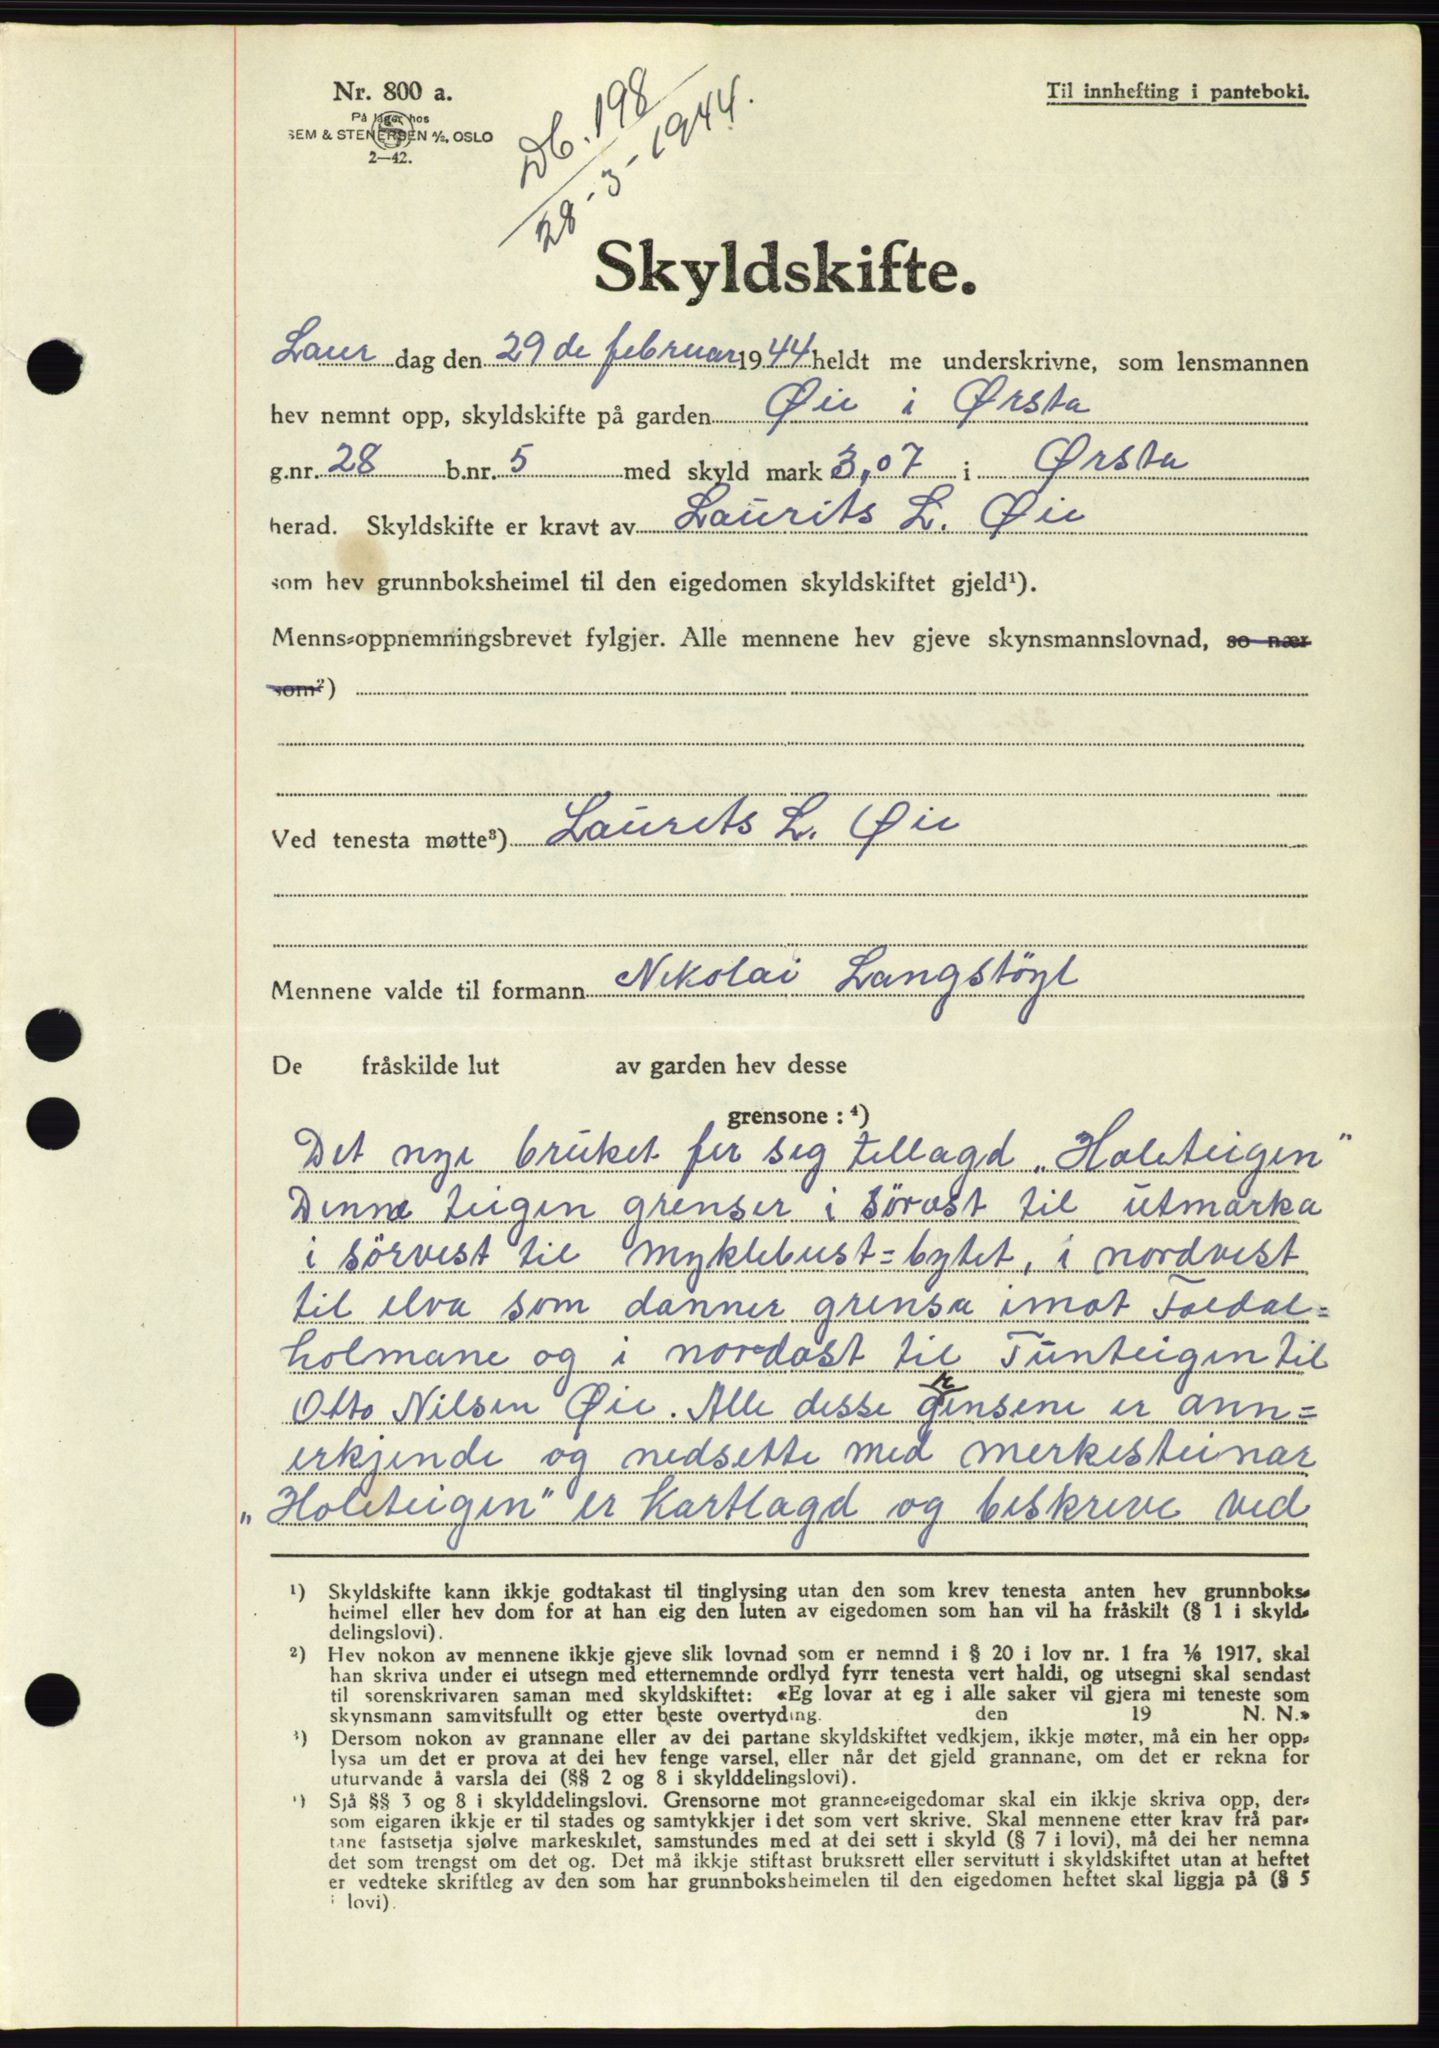 Nr. 800 a.
På lager hos
SEM & STENERSEN A/S, OSLO
2—42.
Db. 198
28-3-1944.
Til innhefting i panteboki.
Skyldskifte.
Laur dag den 29 de februar 1944 heldt me underskrivne, som lensmannen
hev nemnt opp, skyldskifte på garden Øie i Ørsta
g.nr. 28 b.nr. 5 med skyld mark 3,07 i Ørsta
herad. Skyldskifte er kravt av Laurits L. Øie
som hev grunnboksheimel til den eigedomen skyldskiftet gjeld¹).
Menns-oppnemningsbrevet fylgjer. Alle mennene hev gjeve skynsmannslovnad, so nær
som²)
Ved tenesta møtte³) Laurits L. Øie
Mennene valde til formann Nikolai Langstöyl
De fråskilde lut av garden hev desse
grensone : ⁴)
Det nye bruket fer seg tillagd „Holeteigen"
Denne teigen grenser i söraust til utmarka
i sörvest til Myklebust=bytet, i nordvest
til elva som danner grensa imot Foldal=
holmane og i nordast til Tunteigen til
Otto Nilsen Øie. Alle desse grensene er ann=
erkjende og nedsette med merkesteinar
„Holeteigen" er Kartlagd og beskreve ved
¹) Skyldskifte kann ikkje godtakast til tinglysing utan den som krev tenesta anten hev grunnboks-
heimel eller hev dom for at han eig den luten av eigedomen som han vil ha fråskilt (§ 1 i skyld-
delingslovi).
²) Hev nokon av mennene ikkje gjeve slik lovnad som er nemnd i § 20 i lov nr. 1 fra 1/6 1917, skal
han skriva under ei utsegn med etternemnde ordlyd fyrr tenesta vert haldi, og utsegni skal sendast
til sorenskrivaren saman med skyldskiftet: «Eg lovar at eg i alle saker vil gjera mi teneste som
skynsmann samvitsfullt og etter beste overtyding. den 19 N. N.»
³) Dersom nokon av grannane eller av dei partane skyldskiftet vedkjem, ikkje møter, må ein her opp-
lysa um det er prova at dei hev fenge varsel, eller når det gjeld grannane, om det er rekna for
uturvande å varsla dei (§§ 2 og 8 i skylddelingslovi).
⁴) Sjå §§ 3 og 8 i skylddelingslovi. Grensorne mot granne-eigedomar skal ein ikkje skriva opp, der-
som eigaren ikkje er til stades og samtykkjer i det som vert skrive. Skal mennene etter krav frå par-
tane fastsetja sjølve markeskilet, samstundes med at dei sett i skyld (§ 7 i lovi), må dei her nemna
det som trengst om det og. Det må ikkje stiftast bruksrett eller servitutt i skyldskiftet utan at heftet
er vedteke skriftleg av den som har grunnboksheimelen til den eigedomen heftet skal liggja på (§ 5
i lovi).